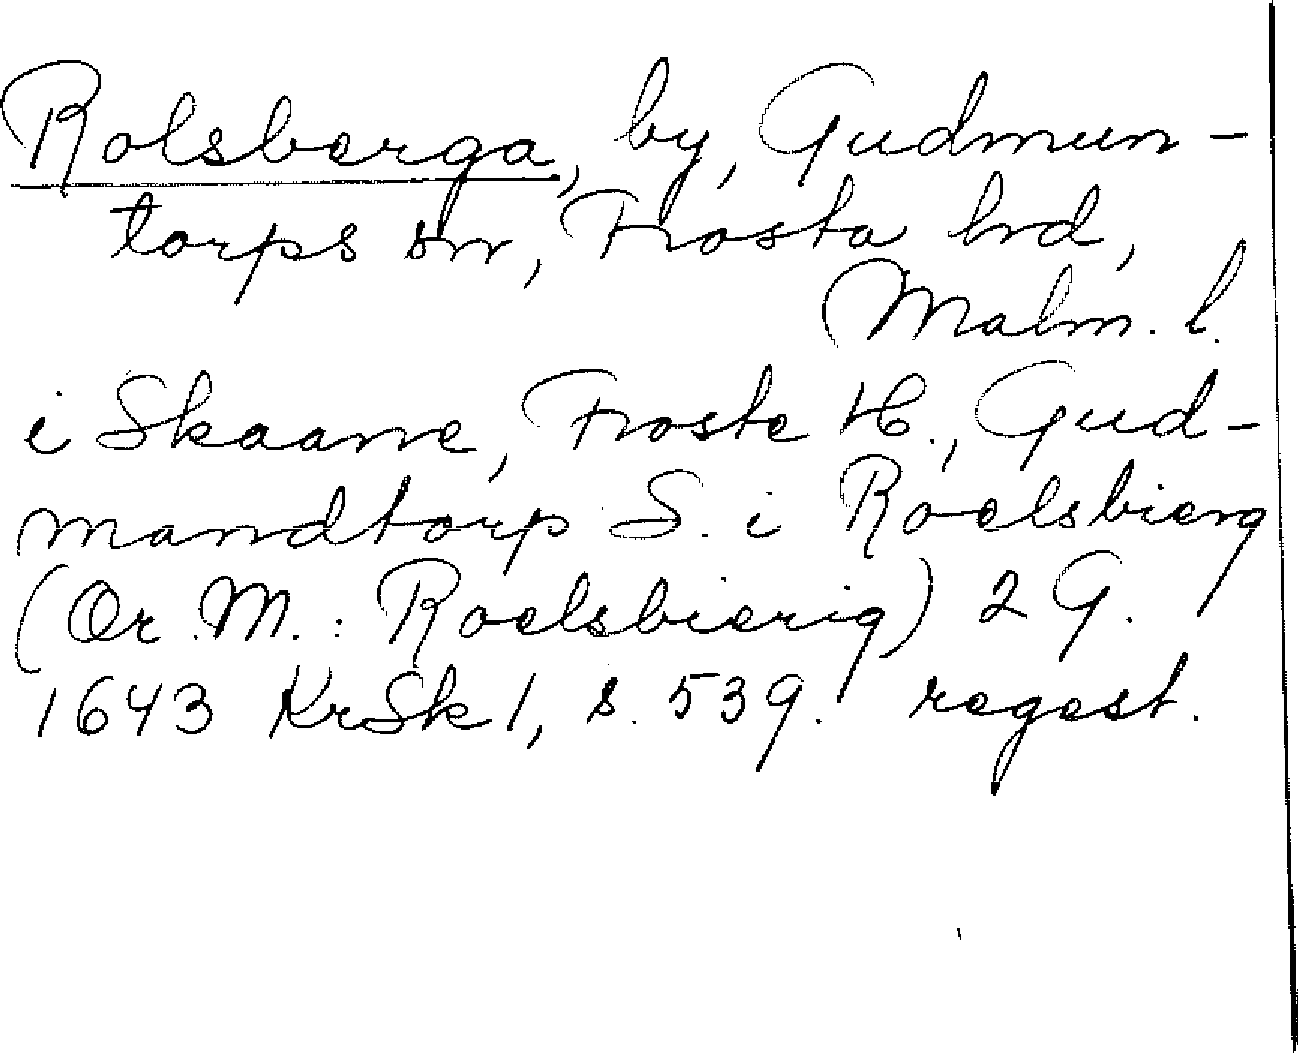 Rolsberga, by, Gudmun-
torps sn, Frosta hd,
Malm. l.
i Skaane, Froste H., Gud-
mandtorp S. i Roelsbierg
(Or. M.: Roelsbierig) 2 G.
1643 KrSk 1, s. 539. regest.